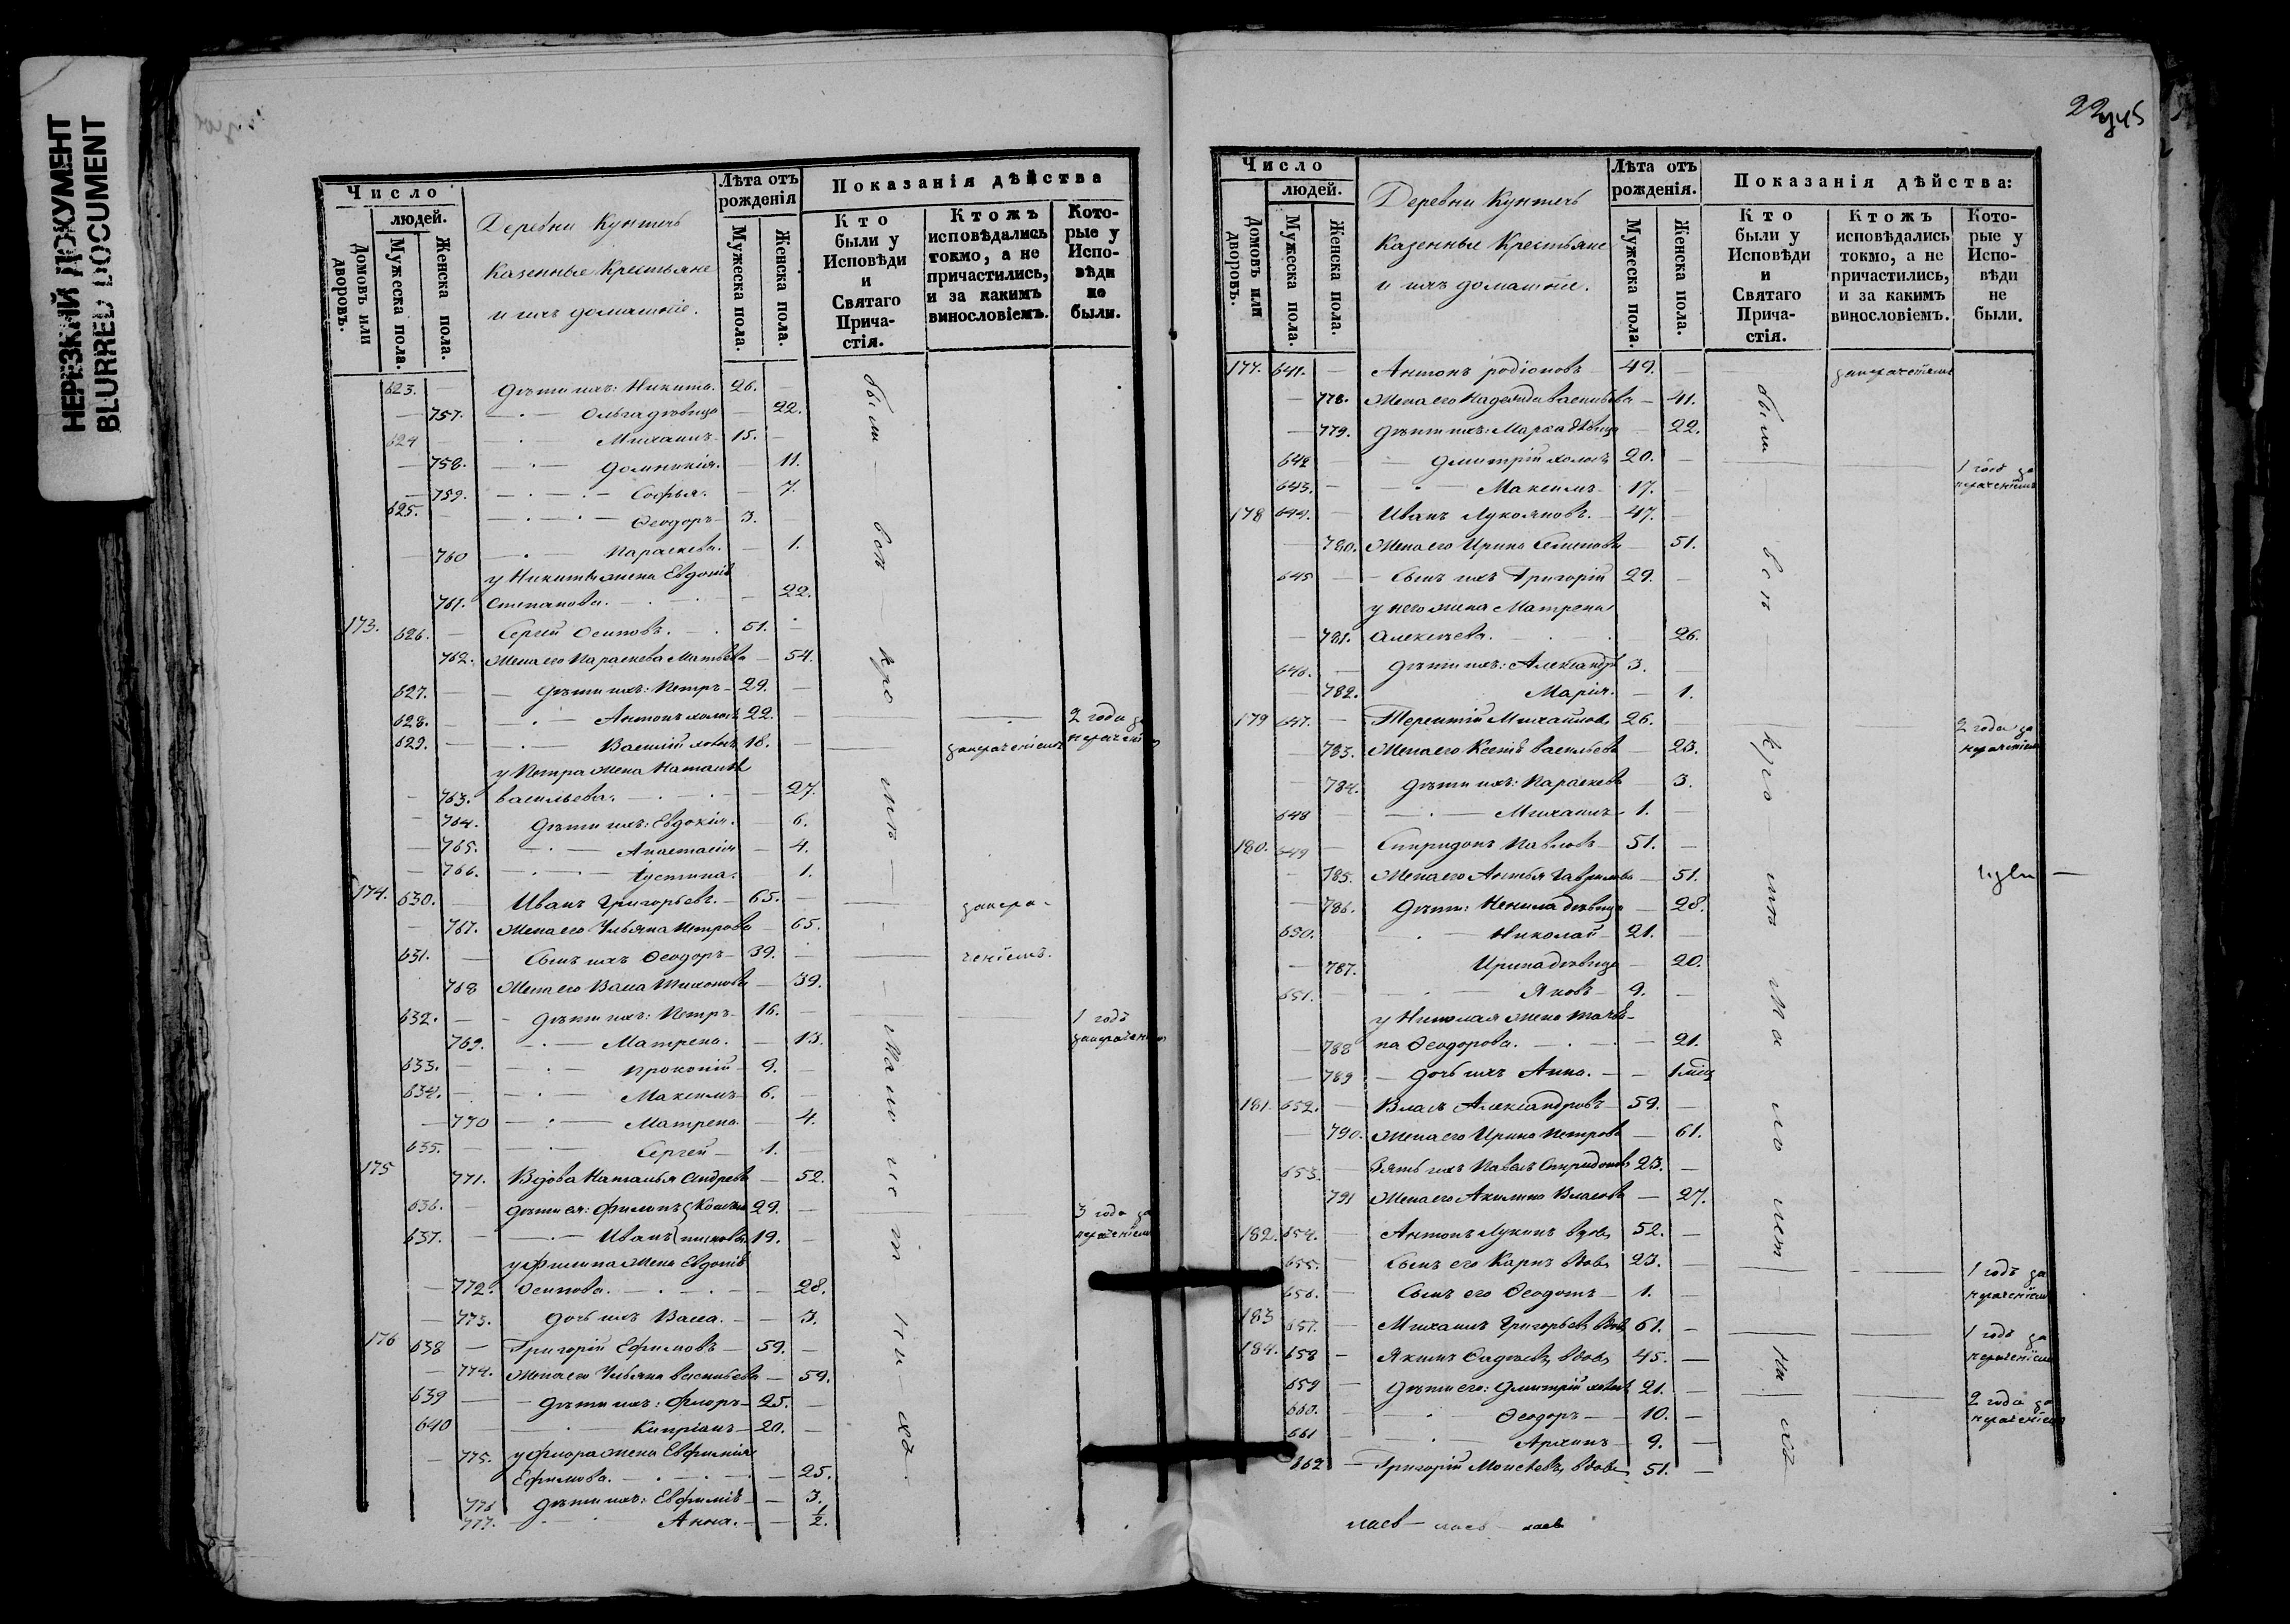 НЕРЕЗКИЙ ДОКУМЕНТ
BLURRED DOCUMENT
Число
людей.
Домовъ или дворовъ.
Мужеска пола.
Женска пола.
Деревни Кунтечь
Казенные Крестьяне
и ихъ домашніе.
Лѣта отъ рожденія
Мужеска пола.
Женска пола.
Показанія дѣйства
Кто были у Исповѣди и Святаго Прича-стія.
Ктожъ исповѣдались токмо, а не причастились, и за какимъ винословіемъ.
Кото-рые у Испо-вѣди не были.
623. — дѣти ихъ: Никита. 26. —
— 757. — Ольга дѣвица — 22.
624 — Михаилъ 15. —
— 758. — Домникія. — 11.
— 759. — Софья. — 7.
625. — Ѳеодоръ 3.
— 760 — Параскева. — 1.
у Никиты жена Евдокія
761. Степанова. — 22.
173. 626. — Сергей Осиповъ. 51. —
762. Жена его Параскева Матвѣева — 54.
627. — дѣти ихъ: Петръ 29. —
628. — Антонъ холостъ 22. — 2 года за
629. — Василій 18. — нераченіемъ
у Петра жена Наталія
— 763. Васильева. — 27.
— 764. дѣти ихъ: Евдокія. — 6.
— 765. — Анастасія — 4.
— 766. — Іустина. — 1.
174. 630. — Иванъ Григорьевъ. 65. — занера-
— 767. Жена его Ульяна Петрова — 65.
631. — Сынъ ихъ Ѳеодоръ 39. — ченіемъ.
768 Жена его Васа Тихонова — 39.
632. — дѣти ихъ: Петръ 16. — 1 годъ
769. — Матрена. — 13. занераченіемъ
633. — Прокопій 9. —
634. — Максимъ 6. —
— 770 — Матрена. — 4.
635. — Сергей 1. —
175 771. Вдова Наталья Андреева — 52.
636. — дѣти ея: Филипъ 29. — 3 года за
637. — Иванъ 19. — нераченіемъ
у Филипа жена Евдокія
— 772. Осипова. — 28.
— 773. дочь ихъ Васса. — 3.
176 638 — Григорій Ефимовъ 59. —
— 774. Жена его Ульяна Васильева — 59.
639 — дѣти ихъ: Флоръ 25. —
640 — Кипріанъ 20. —
— 775. у Флора жена Евфимія
Ефимова. — 25.
776 дѣти ихъ: Евфимія — 3.
777. — Анна. — 1/2.
были
вси
кро
мѣ
Мало
лет
ни
хъ
22
Число
людей.
Домовъ или дворовъ.
Мужеска пола.
Женска пола.
Деревни Кунтечь
Казенные Крестьяне
и ихъ домашніе.
Лѣта отъ рожденія.
Мужеска пола.
Женска пола.
Показанія дѣйства:
Кто были у Исповѣди и Святаго Прича-стія.
Ктожъ исповѣдались токмо, а не причастились, и за какимъ винословіемъ.
Кото-рые у Испо-вѣди не были.
177. 641. — Антонъ Родіоновъ 49. —
— 778. Жена его Надежда Васильева — 41.
— 779. дѣти ихъ: Марѳа дѣвица — 22.
642 — Дмитрій холостъ 20. — 1 годъ за
643. — Максимъ 17. — нераченіемъ
178 644. — Иванъ Лукояновъ. 47. —
— 780. Жена его Ирина Семенова — 51.
645 — Сынъ ихъ Григорій 29. —
у него жена Матрена
— 781. Алексѣева. — 26.
646. — дѣти ихъ: Александръ 3. —
— 782. Марія. — 1.
179 647. — Терентій Михайловъ 26. — 2 года за
— 783. Жена его Ксенія Васильева — 23. нераченіемъ
— 784. дѣти ихъ: Параскева — 3.
648 — Михаилъ 1. —
180. 649 — Спиридонъ Павловъ 51. —
— 785. Жена его Гаврилова — 51.
— 786. дѣти: Ненила дѣвица — 28.
650. — Николай 21. —
— 787. Ирина дѣвица — 20.
651. — Яковъ 9. —
у Николая жена Татья-
— 788 на Ѳеодорова. — 21.
— 789 — дочь ихъ Анна. — 1 мѣс
181. 652. — Власъ Александровъ 59. —
— 790. Жена его Ирина Петрова — 61.
653. — Зять ихъ Павелъ Спиридоновъ 23. —
791 Жена его Акилина Власова — 27.
182. 654. — Антонъ Лукинъ вдовъ 52. —
655. — Сынъ его Карпъ вдовъ 23. — 1 годъ за
656. — Сынъ его Ѳеодотъ 1. — нераченіемъ
183 657. — Михаилъ Григорьевъ вдовъ 61. — 1 годъ за
184. 658 — Якимъ Ѳадѣевъ, вдовъ 45. — нераченіемъ
659 — дѣти его: Дмитрій 21. — 2 года за
660. — Ѳеодоръ 10. — нераченіемъ
661 — Архипъ 9. —
662 — Григорій Моисѣевъ, вдовъ 51. —
были
вси
кро
мѣ
Ма
ло
лет
ни
хъ